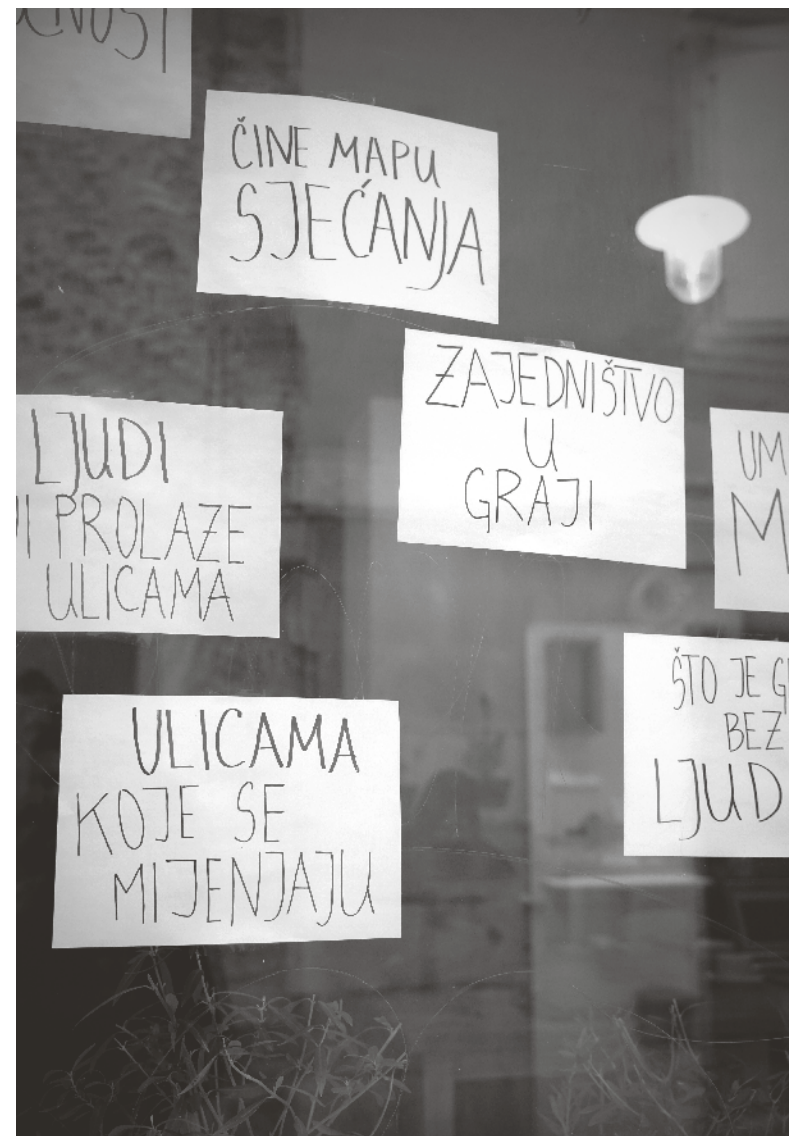 ČINE MAPU
SJEĆANJA
ZAJEDNIŠTVO
U
GRAJI
LJUDI
PROLAZE
ULICAMA
ŠTO JE
BEZ
ULICAMA
KOJE SE
MIJENJAJU